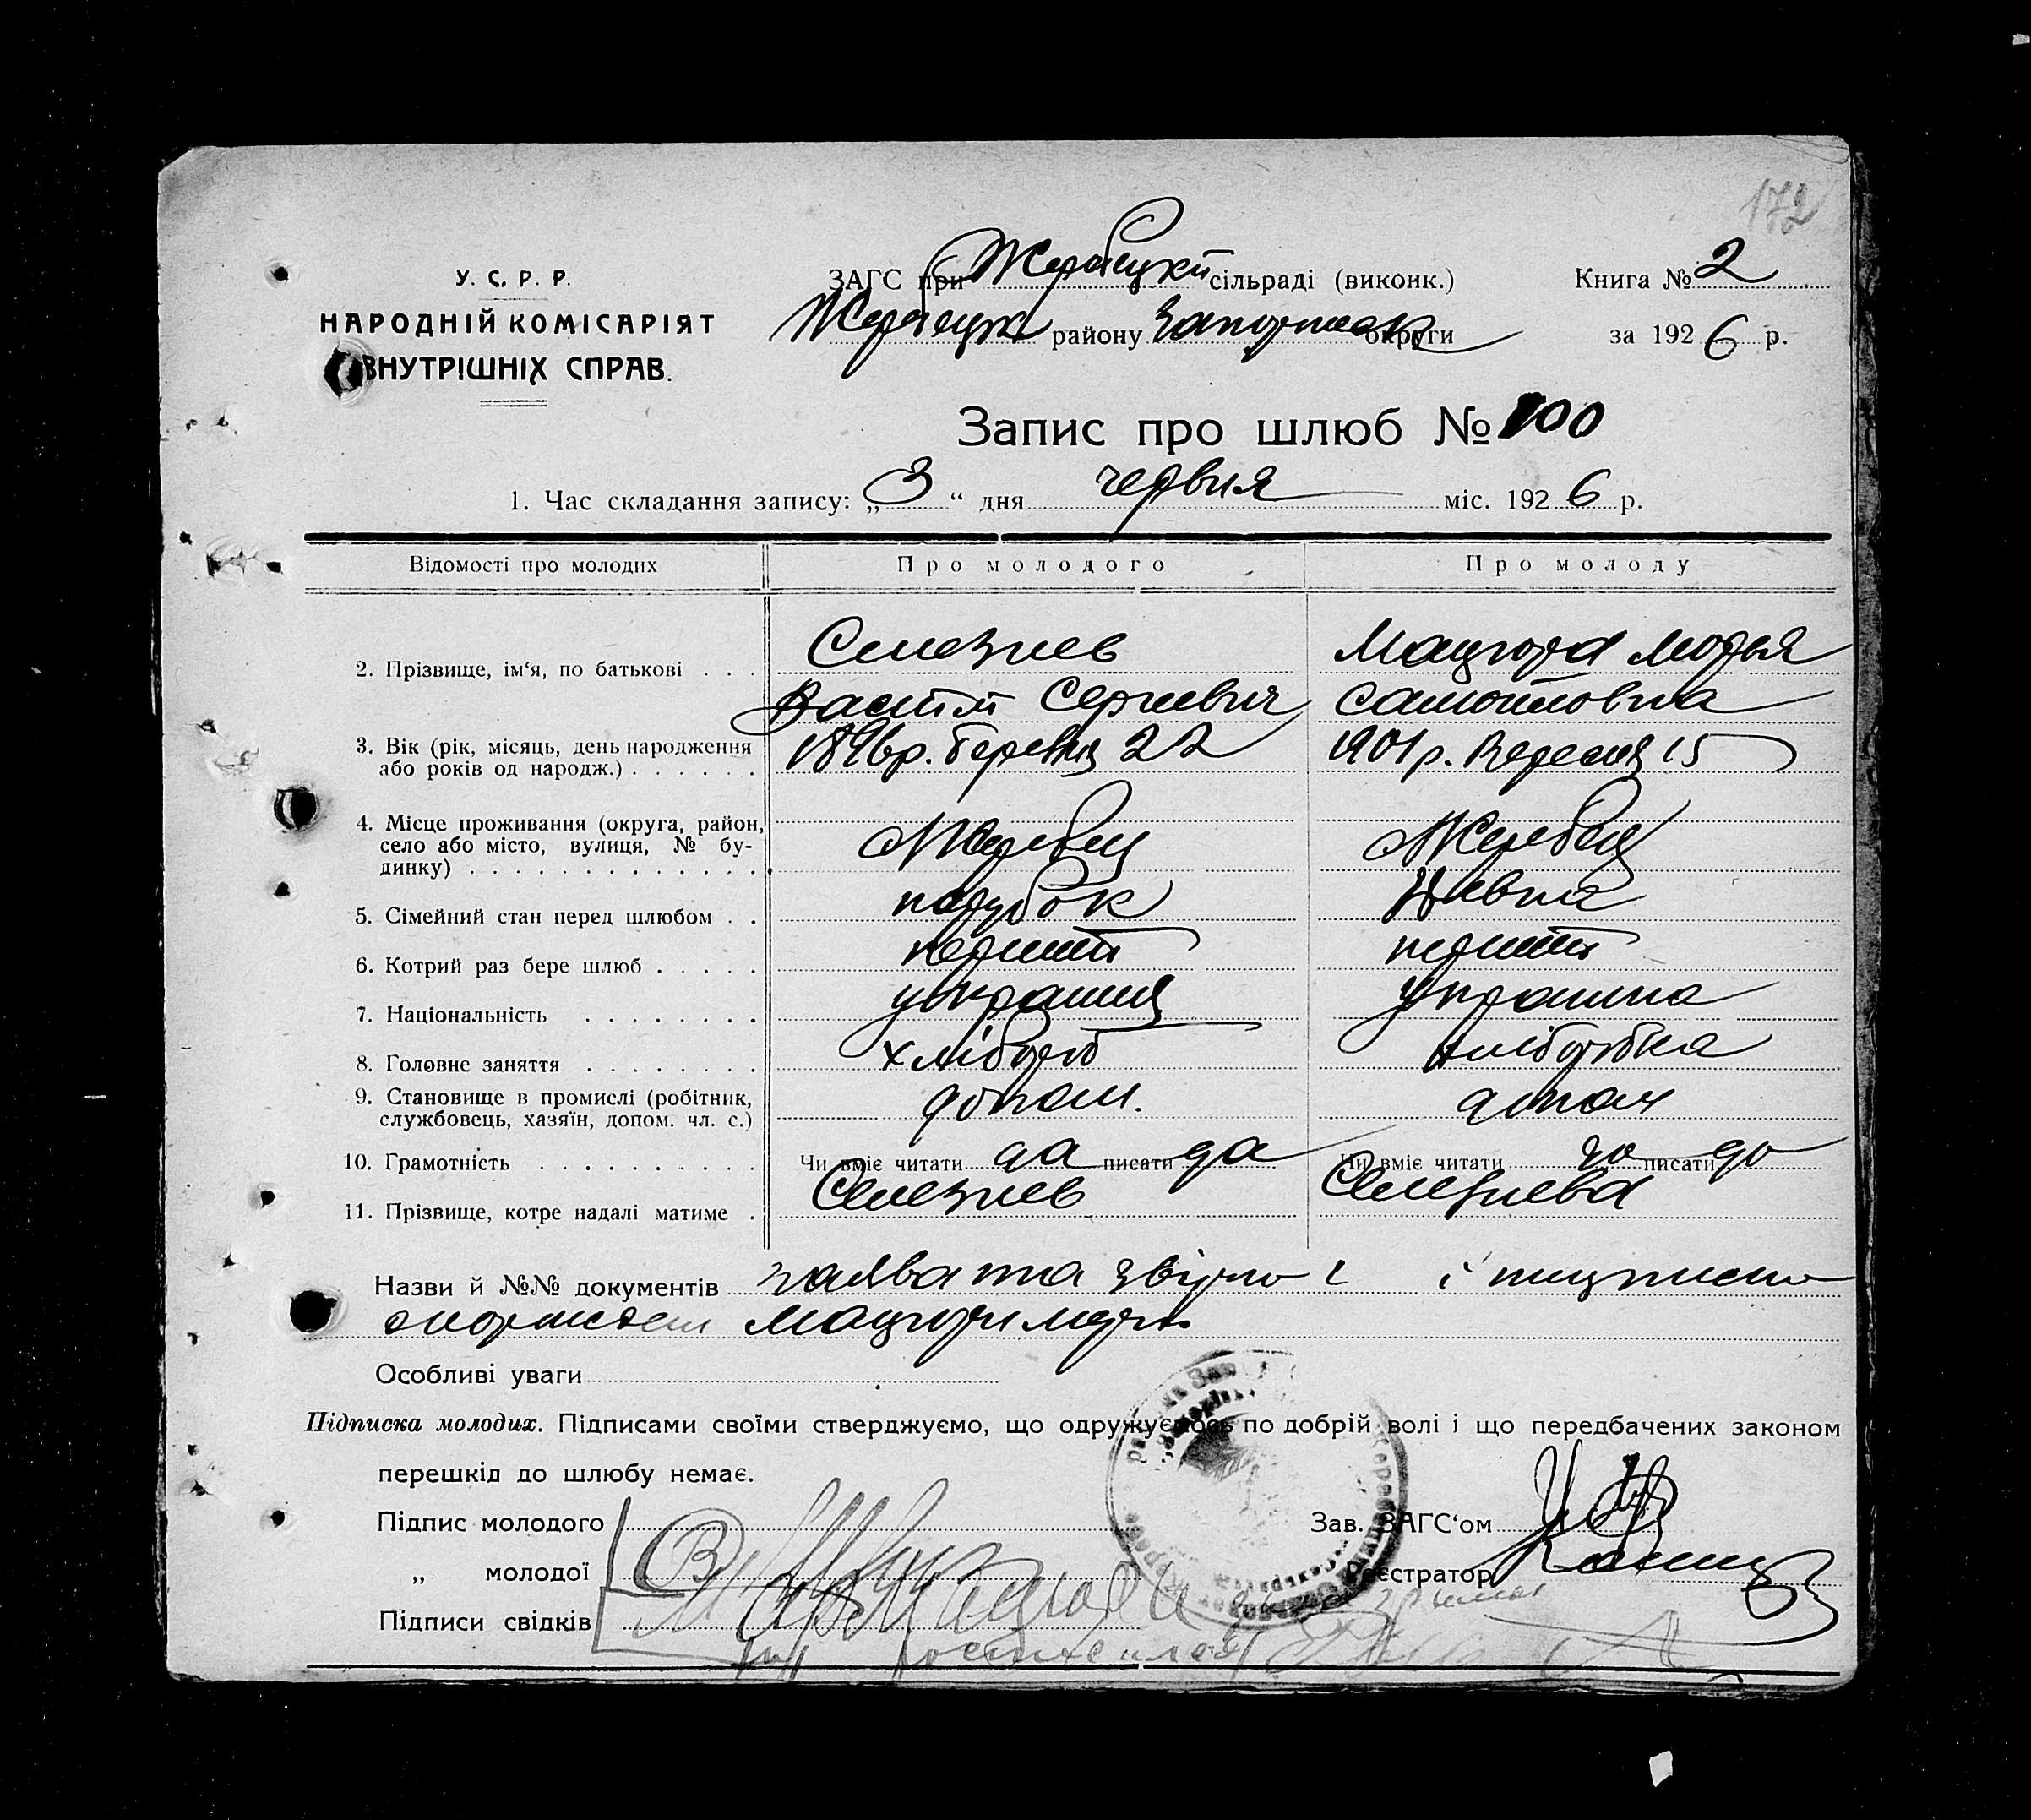 172
У. С. Р. Р.
НАРОДНІЙ КОМІСАРІЯТ
ВНУТРІШНІХ СПРАВ.
ЗАГС при Жеребецкй сільраді (виконк.)
Книга № 2
Жеребецк району Запорожск округи
за 1926 р.
Запис про шлюб № 100
1. Час складання запису: „3“ дня червня міс. 1926 р.
Відомості про молодих
Про молодого
Про молоду
2. Прізвище, ім‘я, по батькові . . .
Селезнев
Мацгора Марья
Сергиевич
Самойловна
3. Вік (рік, місяць, день народження
або років од народж.) . . . . . .
1896р. березня 22
1901р. Вересня 15
4. Місце проживання (округа, район,
село або місто, вулиця, № бу-
динку) . . . . . . . . . . . . .
Жеребец
Жеребец
5. Сімейний стан перед шлюбом . .
парубок
дівка
6. Котрий раз бере шлюб . . . . .
перший
перший
7. Національність . . . . . . . .
украинец
украинка
8. Головне заняття . . . . . . . .
хлібороб
хліборобка
9. Становище в промислі (робітник,
службовець, хазяїн, допом. чл. с.)
допом.
допом
10. Грамотність . . . . . . . . . .
Чи вміє читати да писати да
Чи вміє читати да писати да
11. Прізвище, котре надалі матиме .
Селезнев
Селезнева
Назви й №№ документів заява та
і
Особливі уваги
Підписка молодих. Підписами своїми стверджуємо, що одружуємось по добрій волі і що передбачених законом
перешкід до шлюбу немає.
Підпис молодого
Зав. ЗАГС‘ом
„ молодої
Реєстратор
Підписи свідків